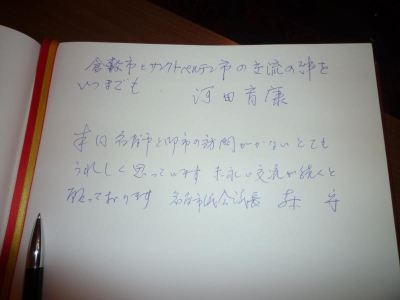 倉敷市とサンクトペルテン市の交流の絆を
いつまでも 河田育康
本日 市の訪問がかないとても
うれしく思っています 末永い交流が続くと
願っております 市議会議長 森 守